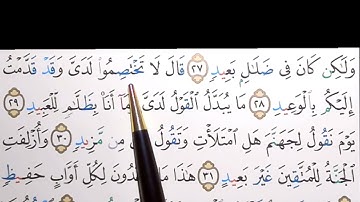 وَلَٰكِن كَانَ فِي ضَلَٰلٍۭ بَعِيدٍ ٢٧ قَالَ لَا تَخْتَصِمُوا۟ لَدَيَّ وَقَدْ قَدَّمْتُ
إِلَيْكُم بِٱلْوَعِيدِ ٢٨ مَا يُبَدَّلُ ٱلْقَوْلُ لَدَيَّ أَنَا۠ بِظَلَّٰمٍ لِّلْعَبِيدِ ٢٩
يَوْمَ نَقُولُ لِجَهَنَّمَ هَلِ ٱمْتَلَأْتِ وَتَقُولُ مِن مَّزِيدٍ ٣٠ وَأُزْلِفَتِ
ٱلْجَنَّةُ لِلْمُتَّقِينَ غَيْرَ بَعِيدٍ ٣١ هَٰذَا مَا لِكُلِّ أَوَّابٍ حَفِيظٍ